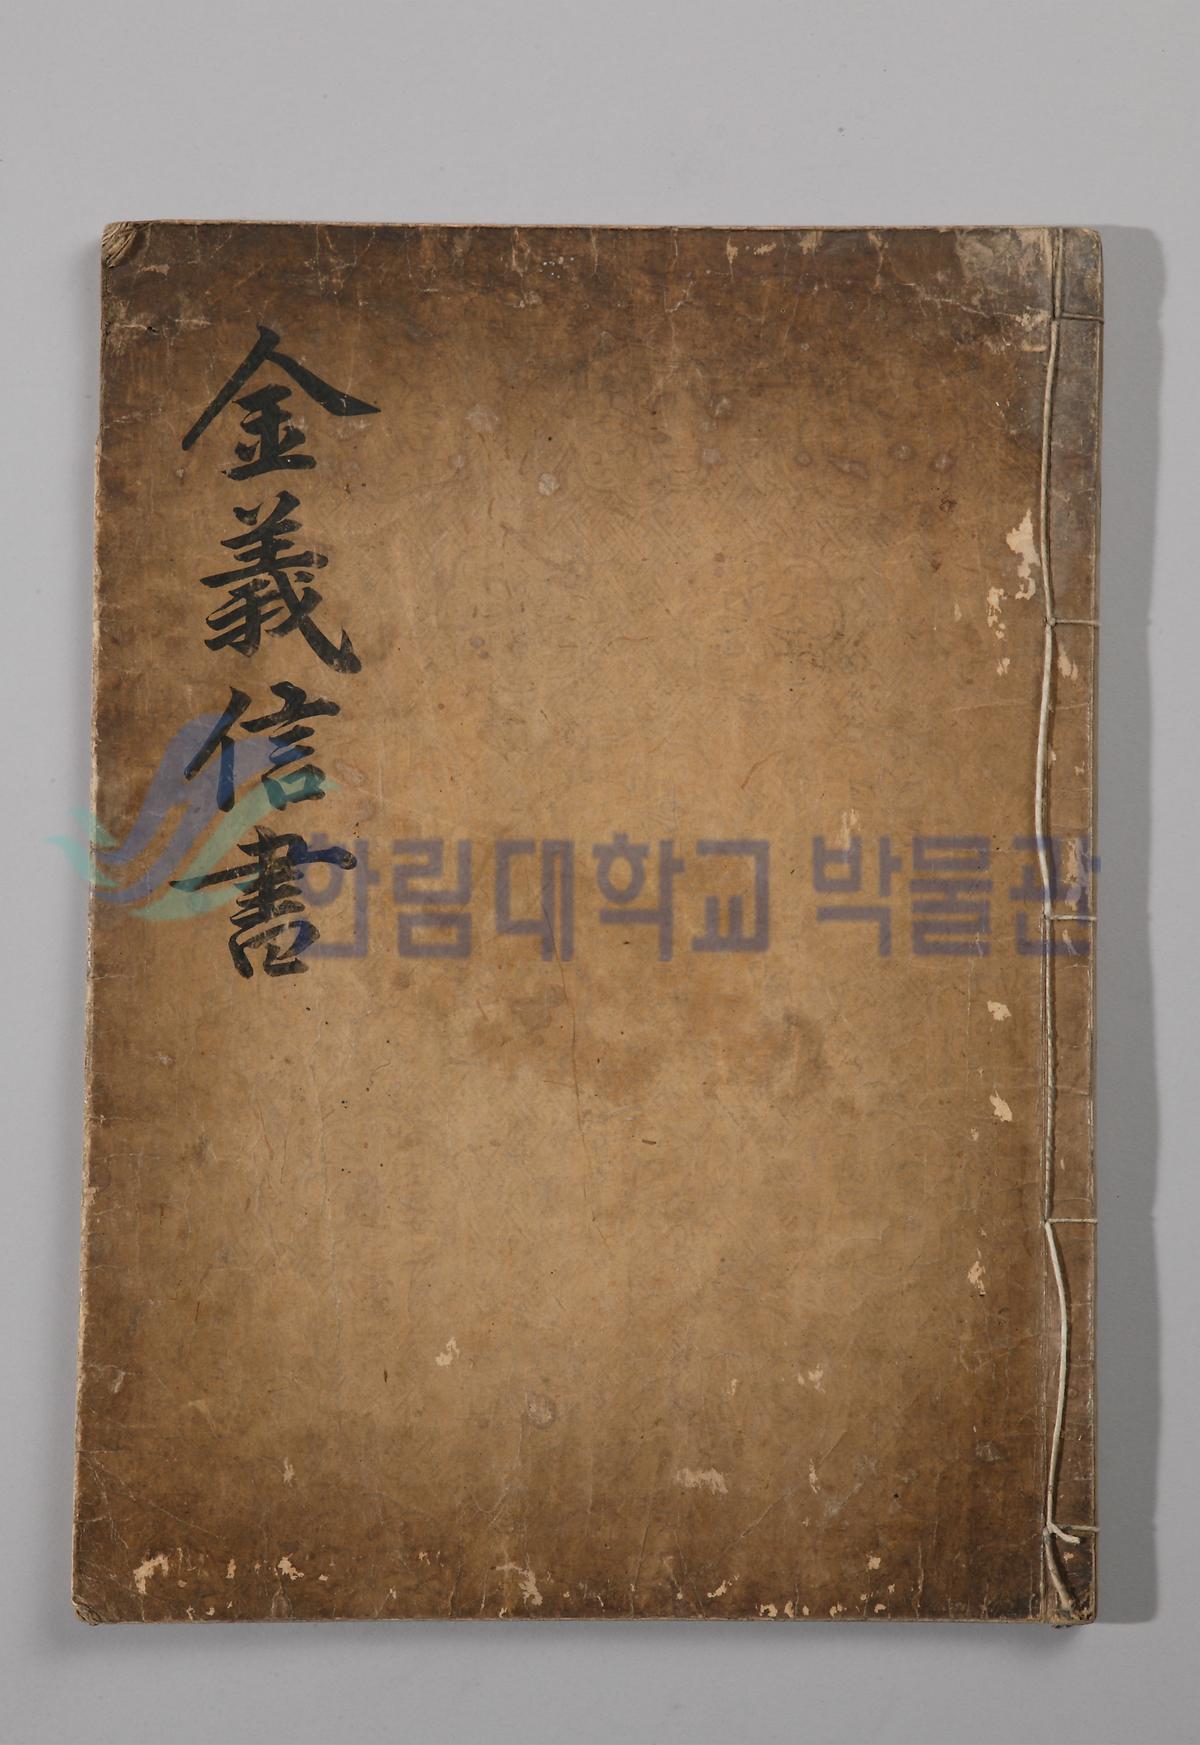 金義信書
한림대학교 박물관